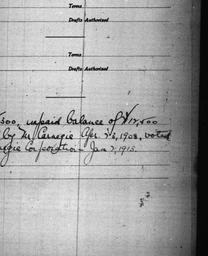 Terms
Drafts Authorized
Terms
Drafts Authorized
500, unpaid balance of $12,500
by Mr. Carnegie Apr. 28, 1908, voted
egie Corporation - Jan 7, 1913.